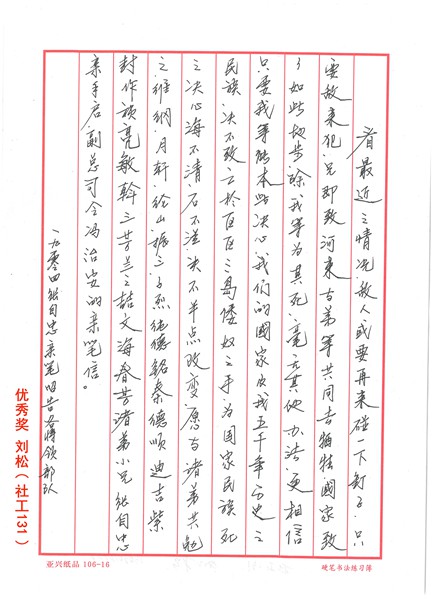 看最近之情况敌人或要再来碰一下钉子只
要敌来犯兄即致河东与弟等共同去牺牲国家致
了如此地步除我等为其死毫无其他办法更相信
只要我等能本此决心我们的国家及我五千年历史之
民族决不致亡于区区三岛倭奴之手为国家民族死
之决心海不清石不烂决不半点改变愿与诸弟共勉
之维纲月轩纶山振三子烈纯德铭秦德顺迪吉紫
封作祯亮敏斡三芳兰之喆文海春芳诸弟小兄张自忠
亲手启副总司令冯治安的亲笔信。
一九四〇张自忠亲笔昭告各将领部队
优秀奖 刘松（社工131）
亚兴纸品 106-16
硬笔书法练习簿